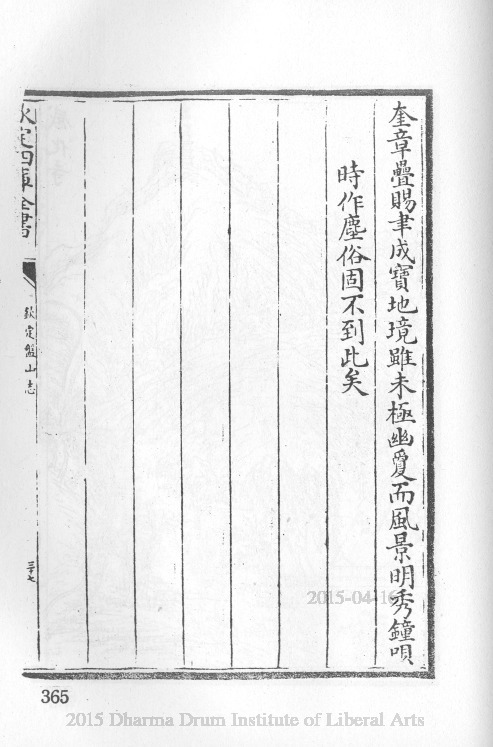 奎章疊賜聿成寶地境雖未極幽夐而風景明秀鐘唄
時作塵俗固不到此矣
欽定四庫全書
欽定盤山志
三十七
365
2015-04-16
2015 Dharma Drum Institute of Liberal Arts